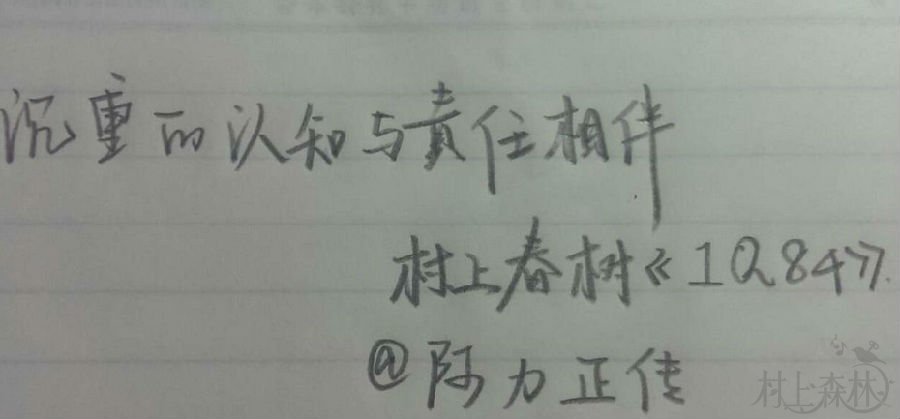 沉重的认知与责任相伴
村上春树《1Q84》.
@阿力正传
村上森林